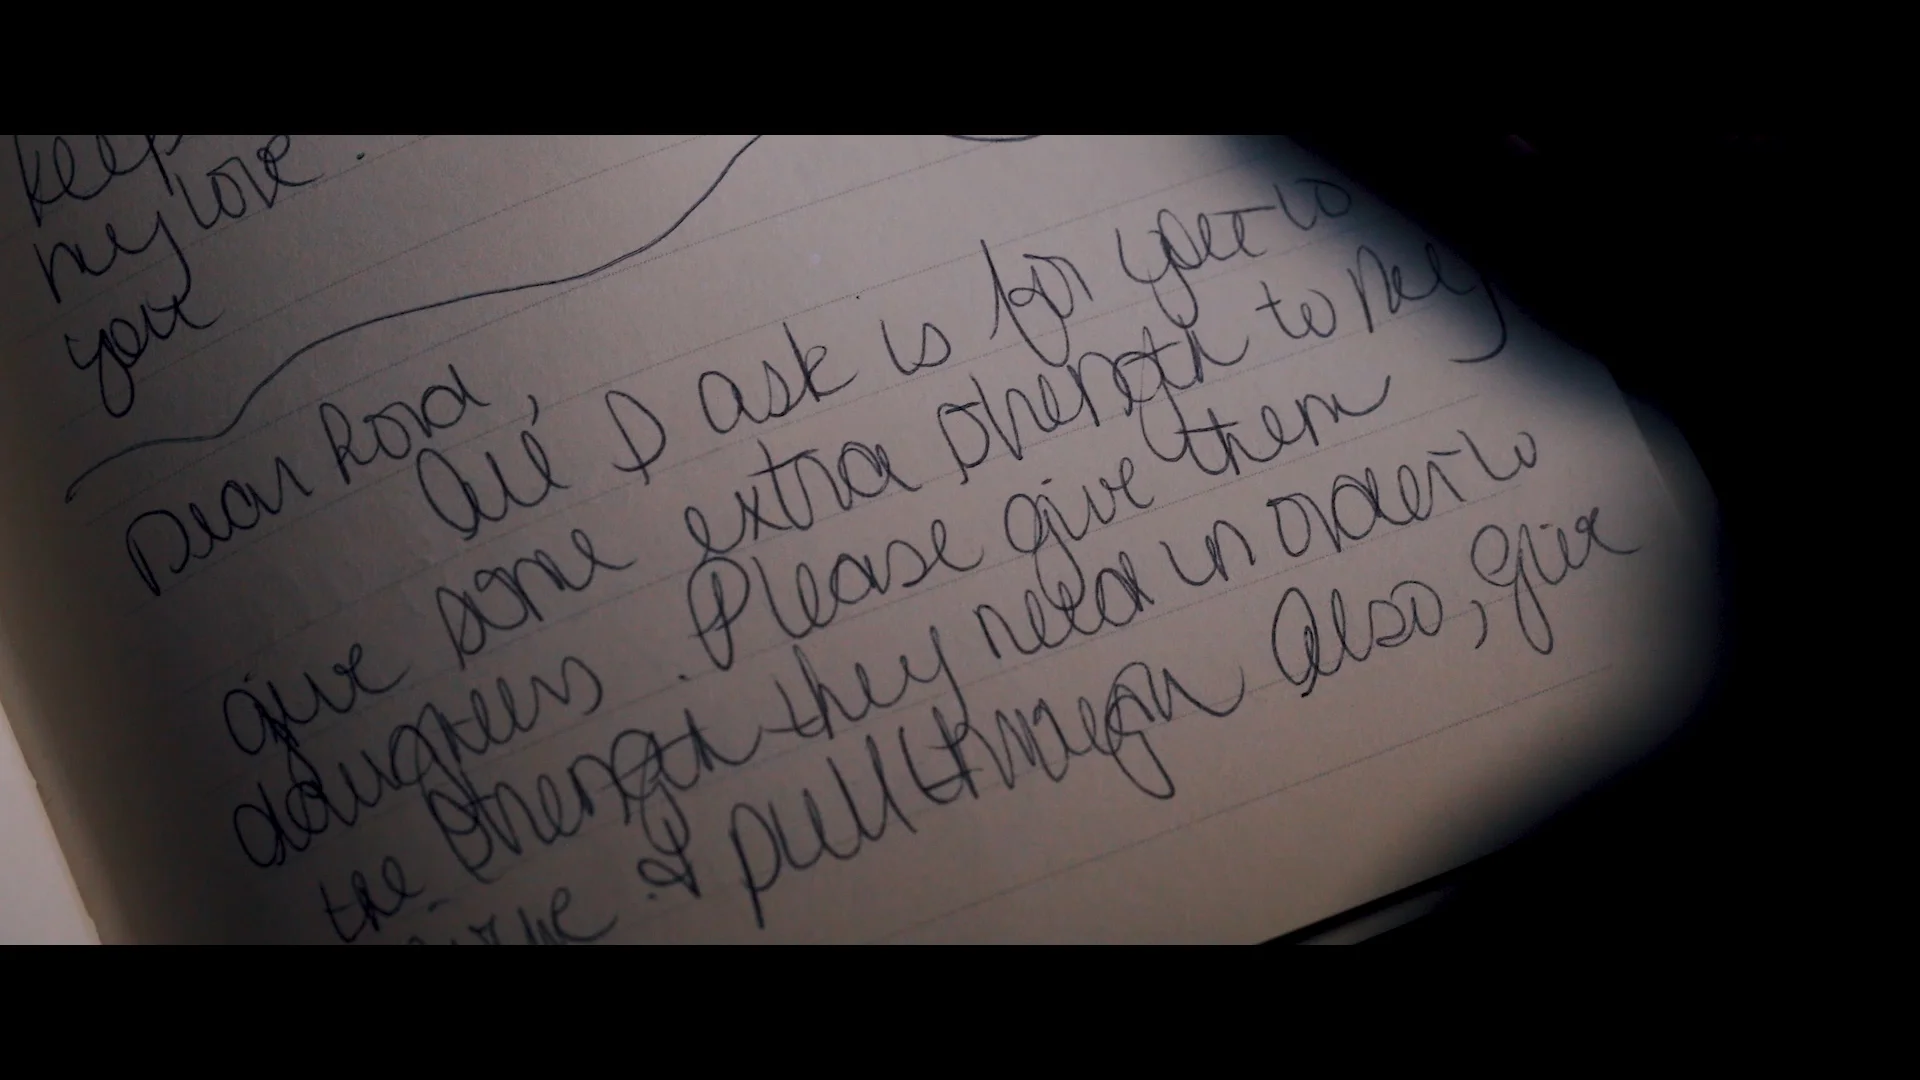 keep
my love.
you
Dear Lord,
All I ask is for you to
give some extra strength to my
daughters. Please give them
the strength they need in order to
& pull through Also, give